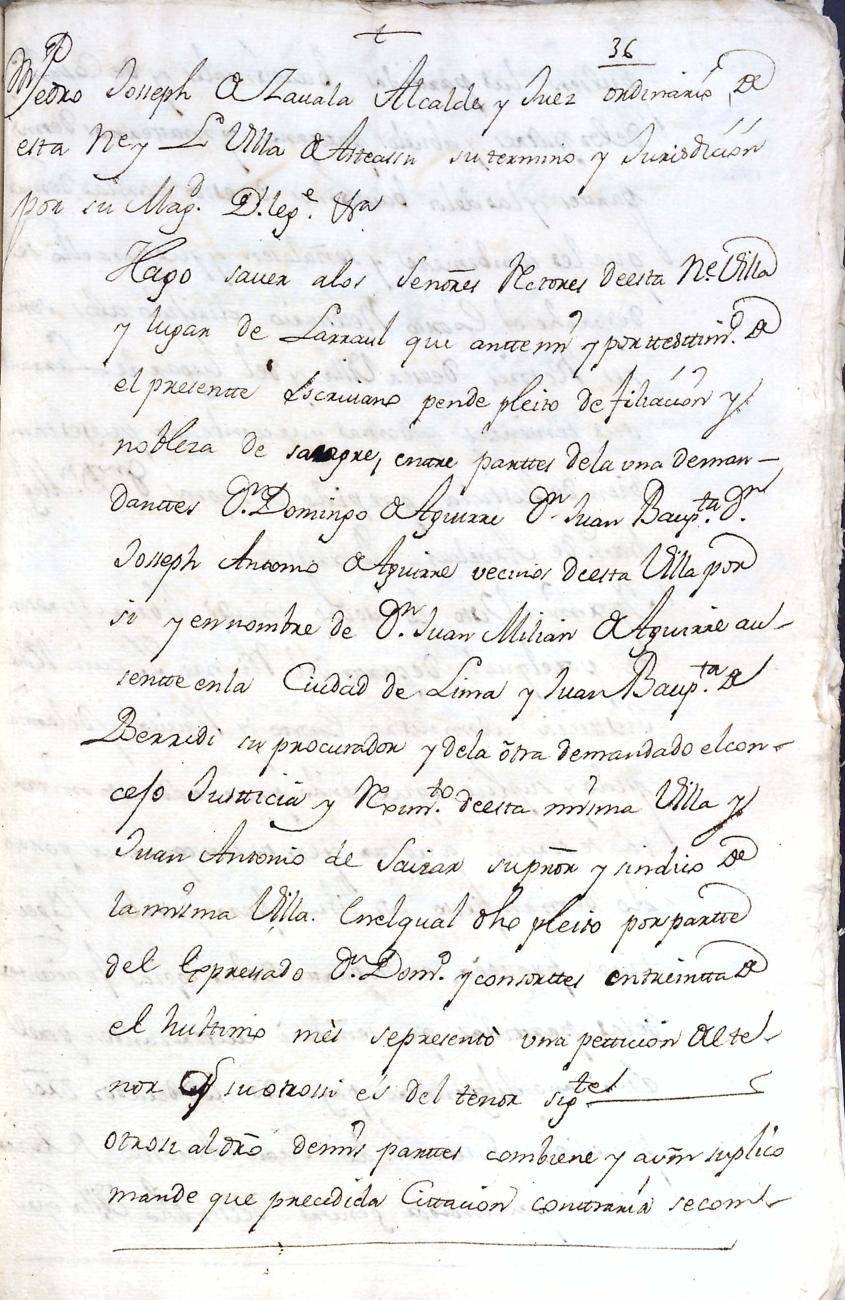 36
Pedro Joseph de Zavala Alcalde y Juez ordinario de
esta N. y L. Villa de Asteassu su termino y Jurisdición
por su Magd. D. lege. &a
Hago saver a los Señores Rectores de esta Ne. Villa
y lugar de Larraul que antte mi y por testtimo. de
el presentte Escrivano pende pleito de filiación y
nobleza de sangre, entre parttes de la una deman-
danttes Dn. Domingo de Aguirre Dn. Juan Bauptta. Dn.
Joseph Antonio de Aguirre vecinos de esta Villa por
si y en nombre de Dn. Juan Milian de Aguirre au-
sentte en la Ciudad de Lima y Juan Baupta. de
Berridi su procurador y de la otra demandado el con-
cejo Justticia y Reximto. de esta misma Villa y
Juan Antonio de Saizar su pror. y sindico de
la misma Villa. En el qual dho pleito por partte
del Expressado Dn. Domo. y consorttes en treintta de
el husttimo mès se presentò una petticion del te-
nor y su otrossi es del tenor sigte.
Otrosi al dro. de mis parttes combiene y a vm suplico
mande que precedida Cittacion conttraria se com-